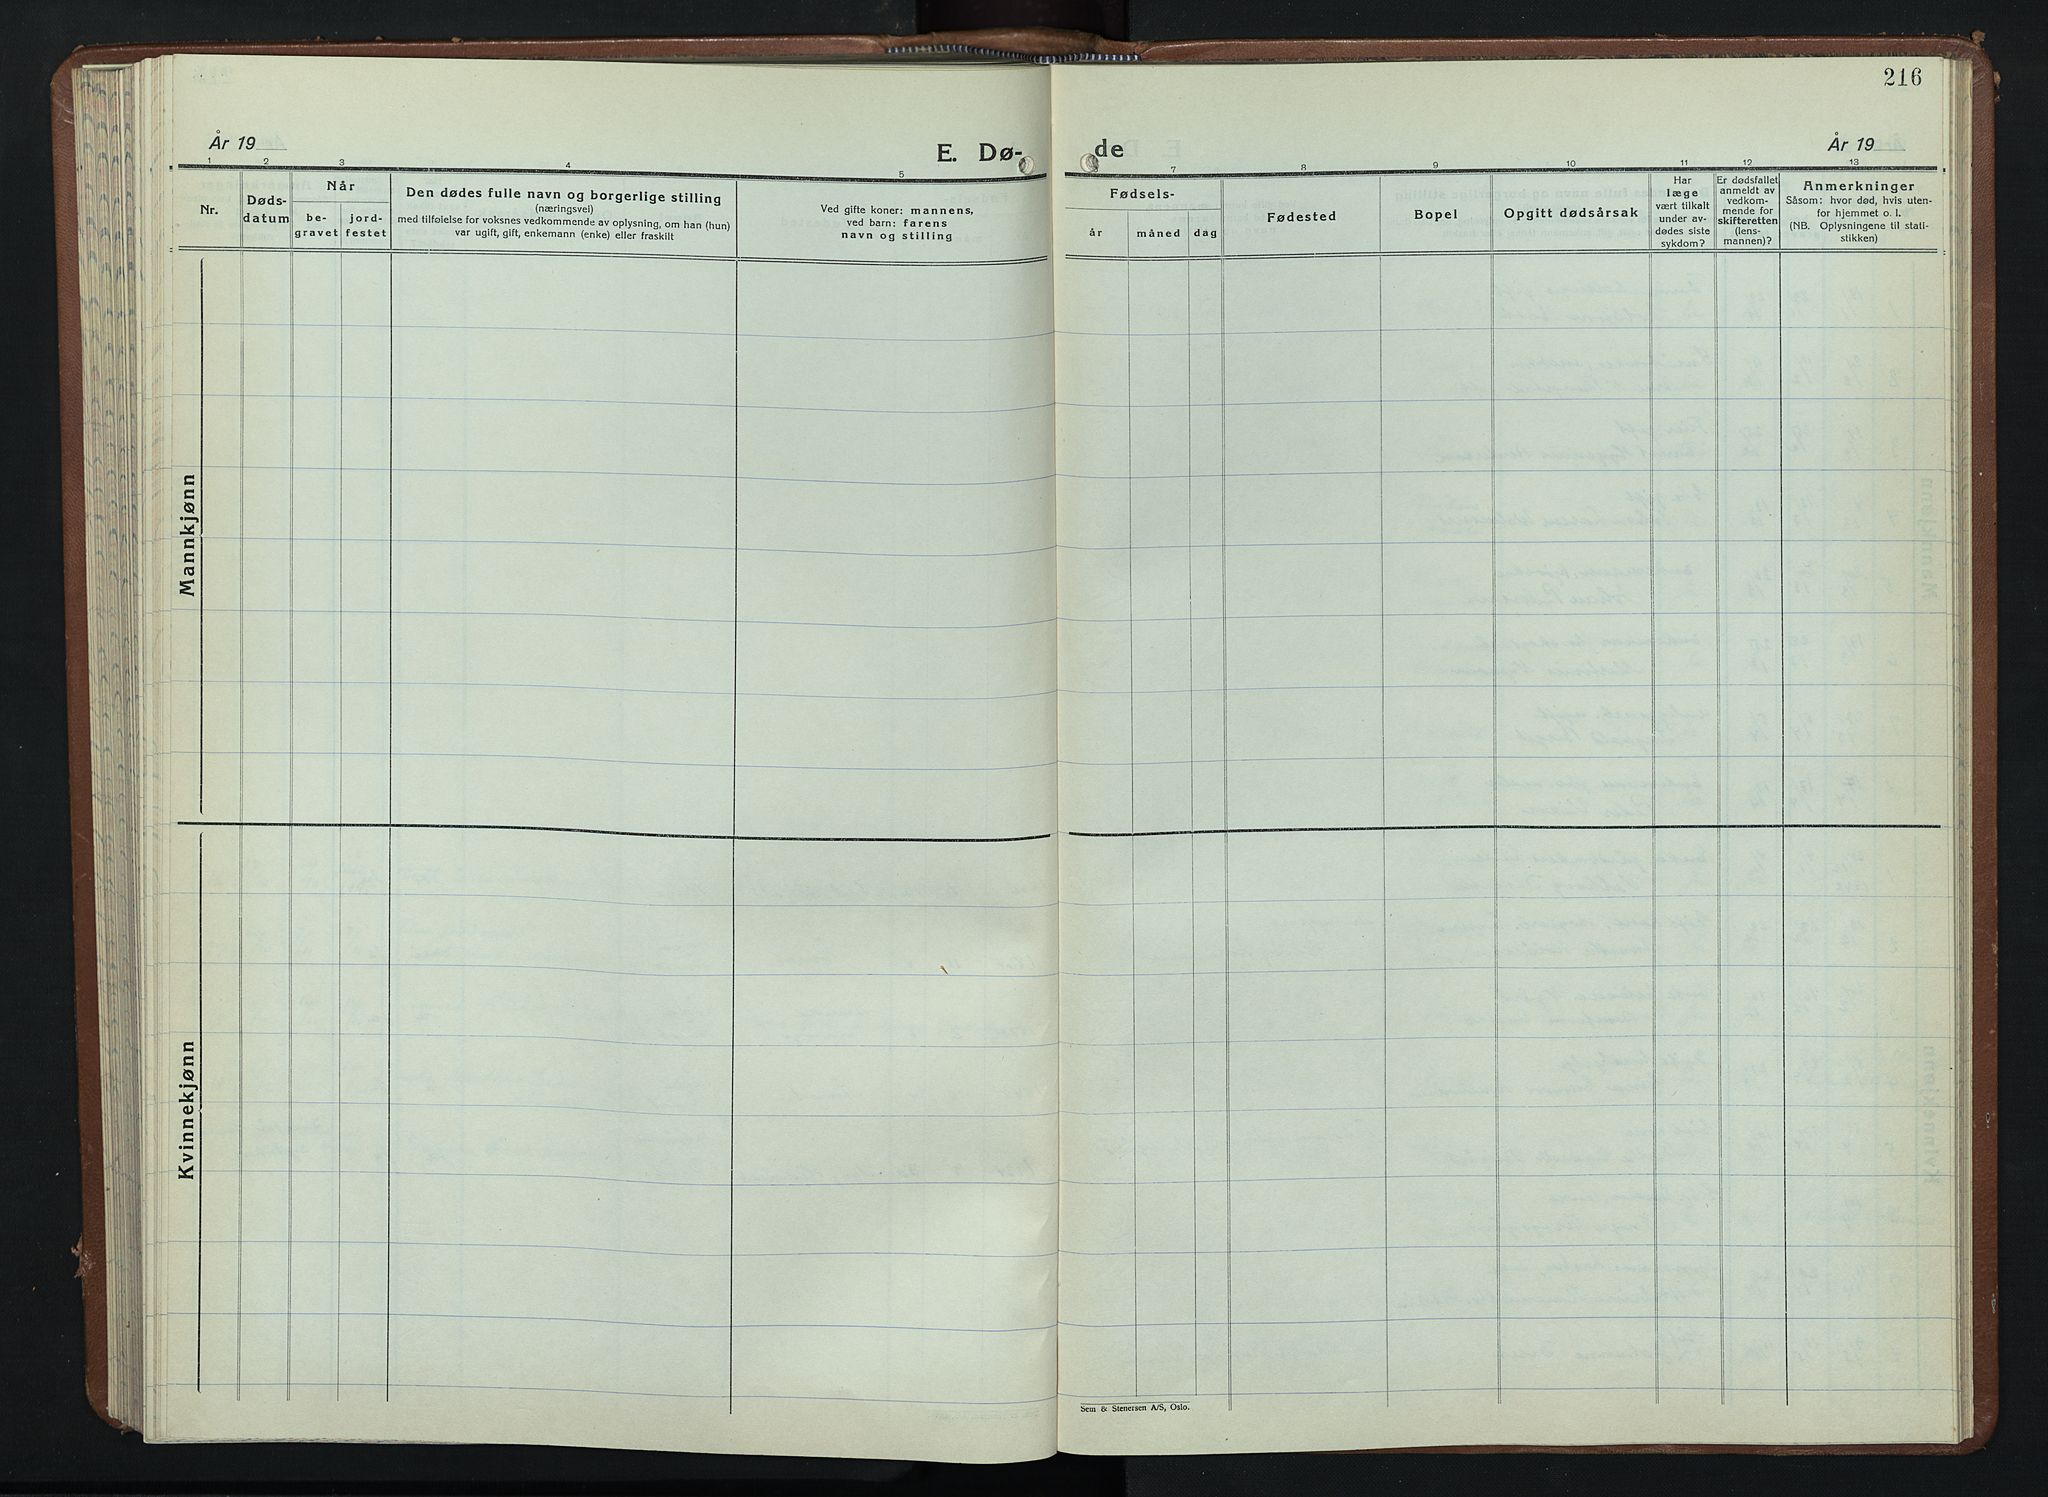 216
År 19
E. Dø-
de
År 19
1 2 3 4 5
7 8 9 10 11 12 13
Nr.
Døds-
datum
Når
be-
gravet
jord-
festet
Den dødes fulle navn og borgerlige stilling
(næringsvei)
med tilføielse for voksnes vedkommende av oplysning, om han (hun)
var ugift, gift, enkemann (enke) eller fraskilt
Ved gifte koner: mannens,
ved barn: farens
navn og stilling
Fødsels-
år
måned
dag
Fødested
Bopel
Opgitt dødsårsak
Har
læge
vært tilkalt
under av-
dødes siste
sykdom?
Er dødsfallet
anmeldt av
vedkom-
mende for
skifteretten
(lens-
mannen)?
Anmerkninger
Såsom: hvor død, hvis uten-
for hjemmet o. l.
(NB. Oplysningene til stati-
stikken)
Mannkjønn
Kvinnekjønn
Sem & Stenersen A/S, Oslo.